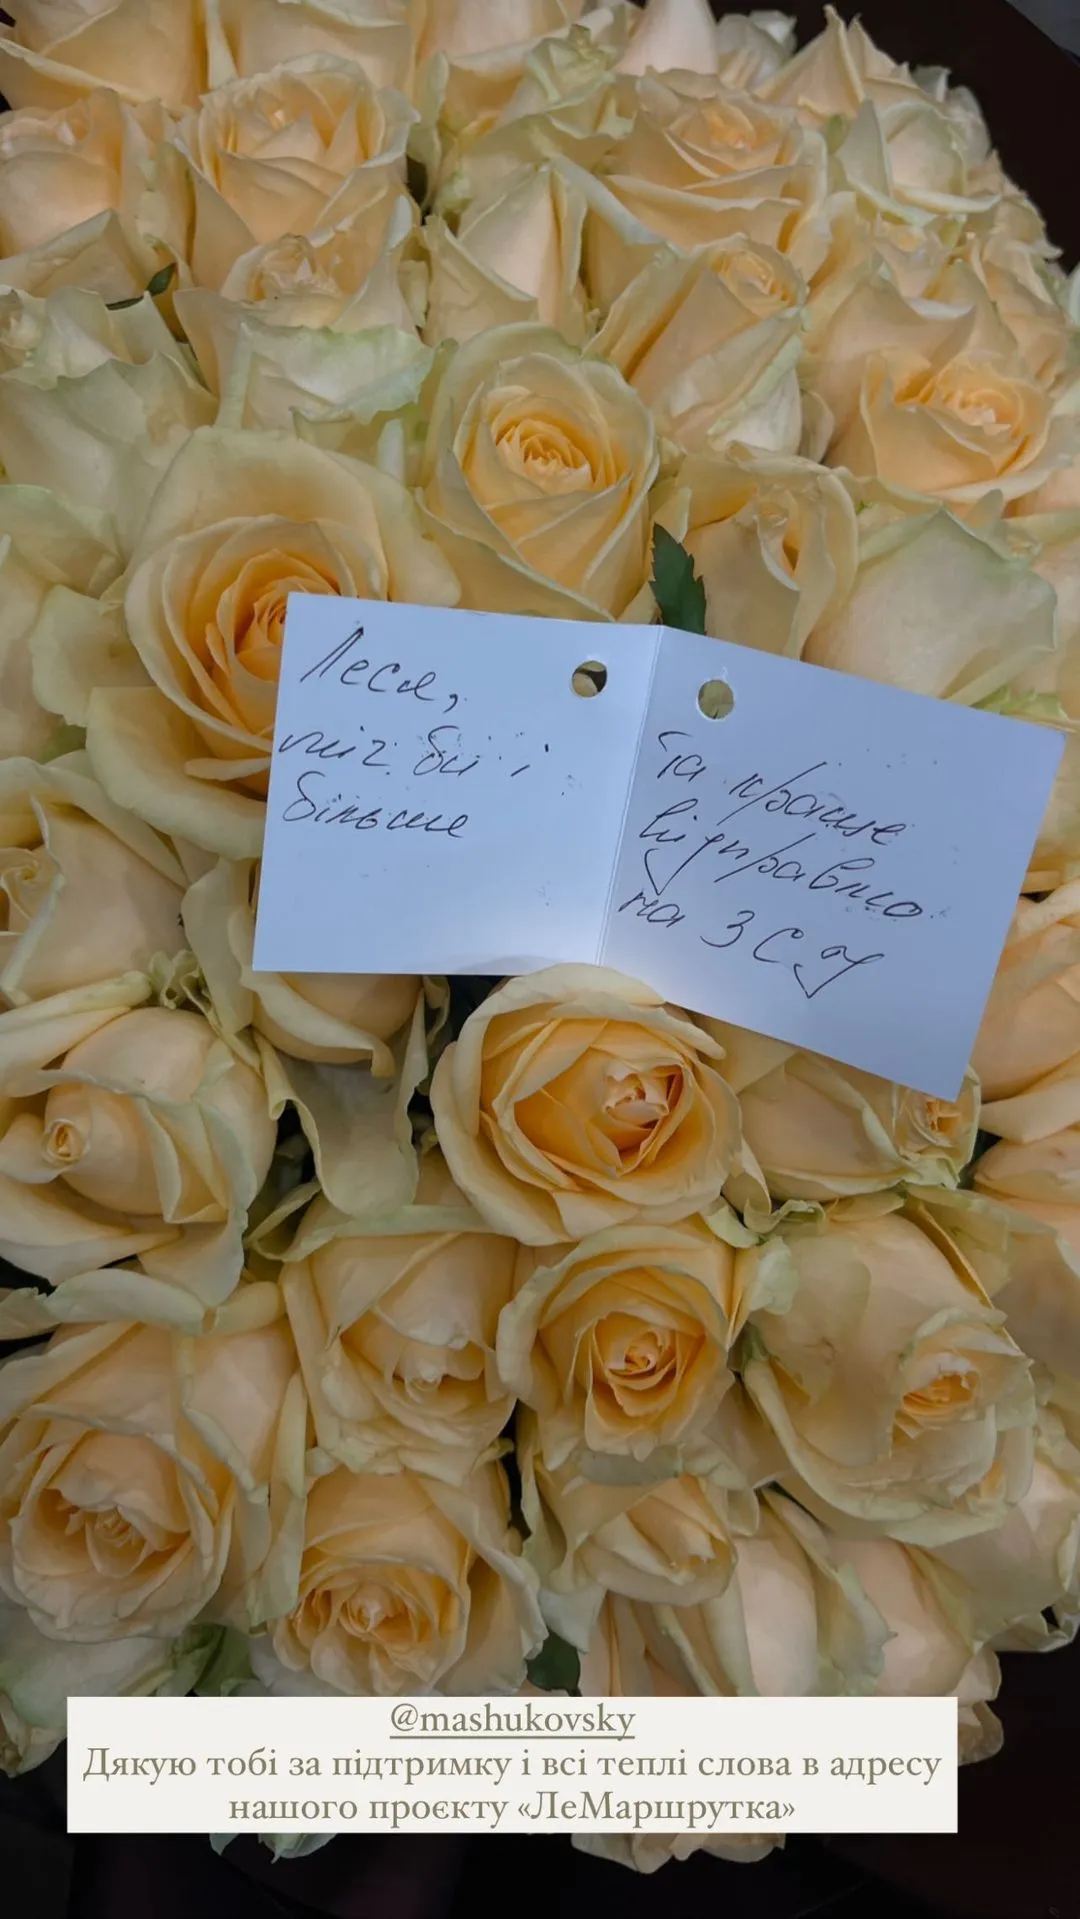 Леся,
міг би і
більше
та краще
відправлю
на ЗСУ
@mashukovsky
Дякую тобі за підтримку і всі теплі слова в адресу
нашого проєкту «ЛеМаршрутка»